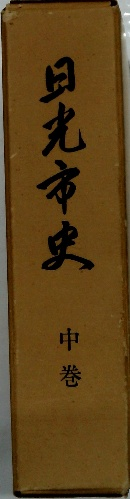 日光市史
中巻